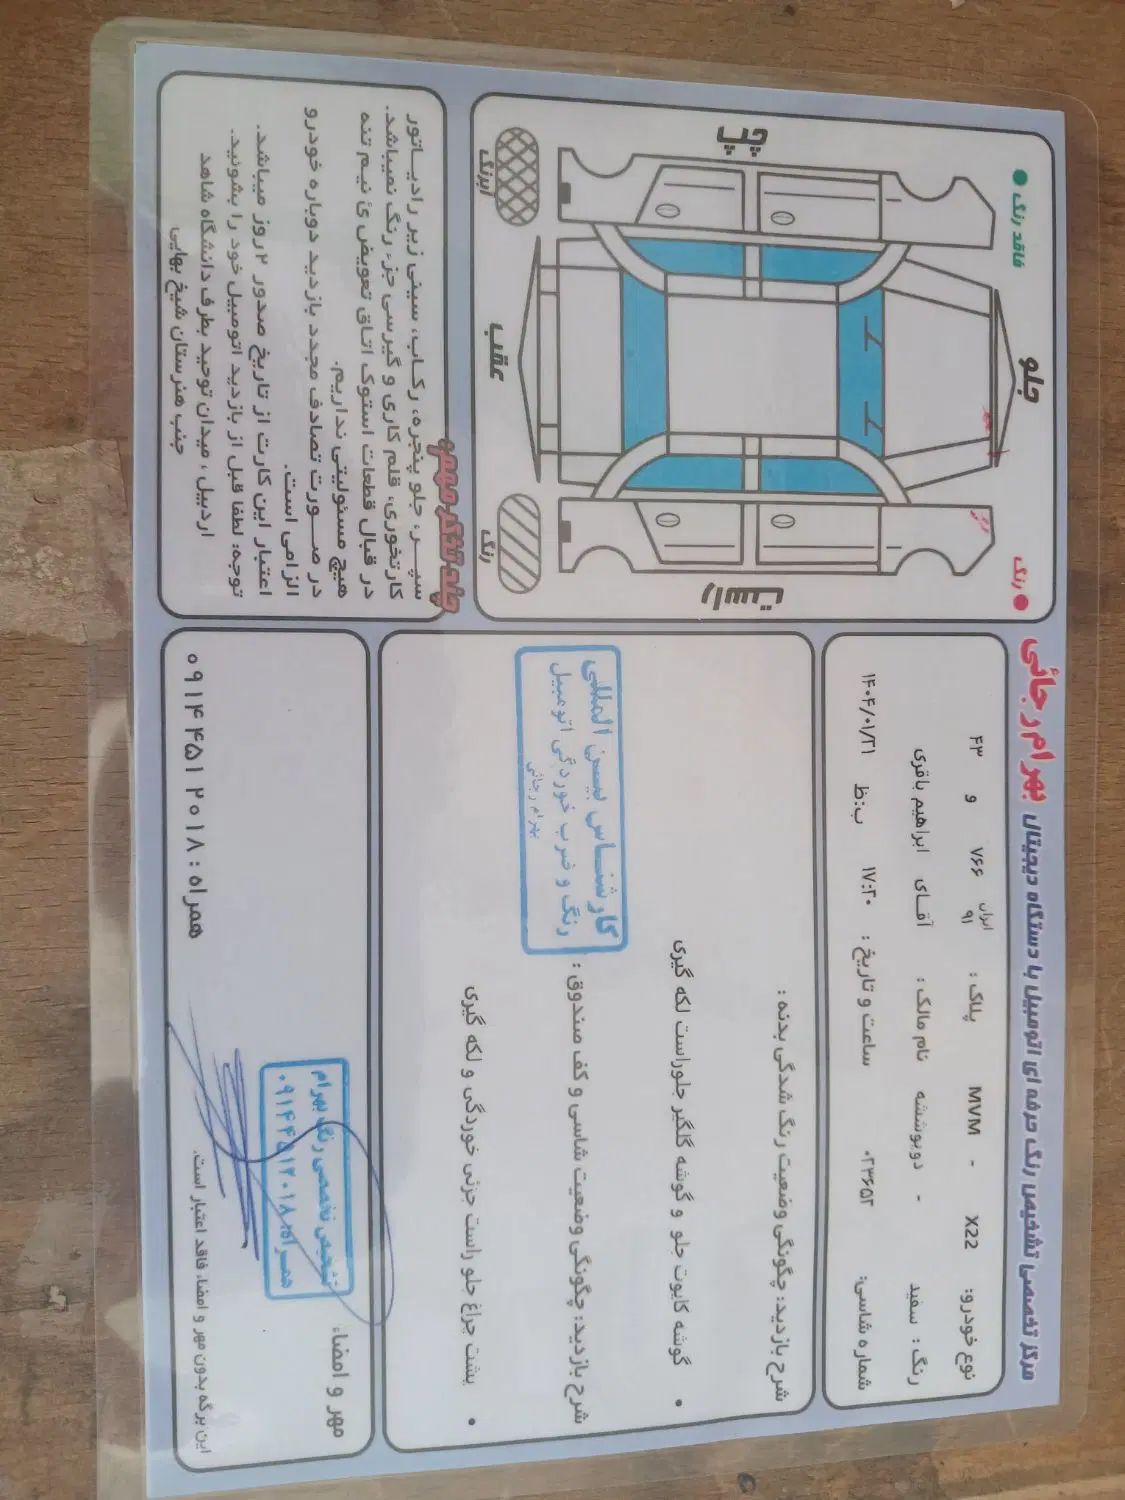 مرکز تخصصی تشخیص رنگ حرفه ای اتومبیل با دستگاه دیجیتال بهرام رجائی
نوع خودرو: MVM - X22 پلاک : ایران ۹۱ ۷۶۶ و ۴۳
رنگ : سفید - دوپوششه نام مالک : آقـای ابراهیم باقری
شماره شاسی: ۰۲۳۶۵۲ ساعت و تاریخ : ۱۷:۲۰ ب.ظ ۱۴۰۴/۰۱/۲۱
شرح بازدید: چگونگی وضعیت رنگ شدگی بدنه :
• گوشه کاپوت جلو و گوشه گلگیر جلوراست لکه گیری
شرح بازدید: چگونگی وضعیت شاسی و کف صندوق :
• پشت چراغ جلو راست جزئی خوردگی و لکه گیری
کارشناس بین المللی
رنگ و ضرب خوردگی اتومبیل
بهرام رجائی
مهر و امضاء
تشخیص تخصصی رنگ بهرام
همراه: ۰۹۱۴۴۵۱۲۰۱۸
این برگه بدون مهر و امضاء فاقد اعتبار است.
همراه : ۰۹۱۴۴۵۱۲۰۱۸
فاقد رنگ
رنگ
جلو
چپ
راست
عقب
آبرنگ
رنگ
چند تذکر مهم:
سپـر، جلو پنجره، رکـاب، سینی زیر رادیـاتور
کارتخوری، قلم کاری و گیرسی جزء رنگ نمیباشد.
در قبال قطعات استوک اتـاق تعویض ئ نیـم تنه
هیچ مسئولیتی نداریم.
در صــورت تصادف مجدد بازدید دوباره خودرو
الزامی است.
اعتبار این کارت از تاریخ صدور ۲ روز میباشد.
توجه: لطفا قبل از بازدید اتومبیل خود را بشوئید.
اردبیل ، میدان توحید بطرف دانشگاه شاهد
جنب هنرستان شیخ بهایی